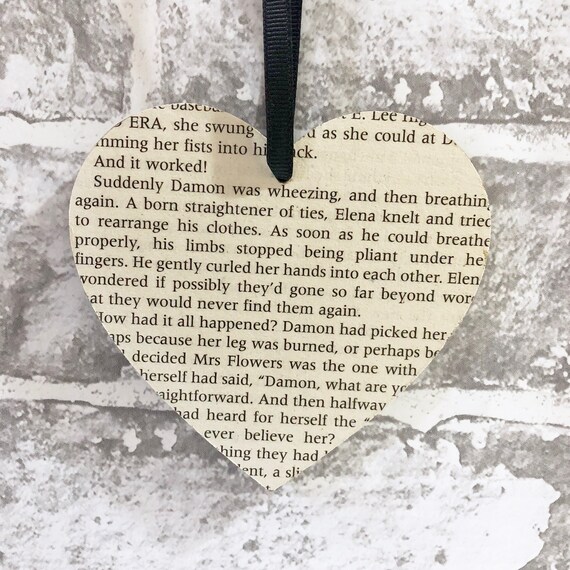 E. Lee
ERA, she swung as she could at
her fists into
And it worked!
Suddenly Damon was wheezing, and then breathin
again. A born straightener of ties, Elena knelt and tried
to rearrange his clothes. As soon as he could breathe
properly, his limbs stopped being pliant under he
fingers. He gently curled her hands into each other. Elen
wondered if possibly they'd gone so far beyond wor
at they would never find them again.
How had it all happened? Damon had picked her
aps because her leg was burned, or perhaps be
decided Mrs Flowers was the one with
herself had said, “Damon, what are yo
aightforward. And then halfway
had heard for herself the “
ever believe her?
hing they had
ent, a sli